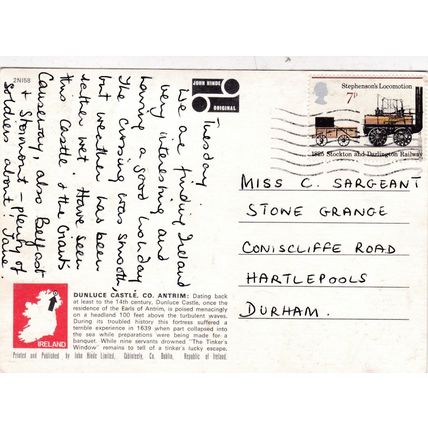 2NI58
JOHN HINDE
ORIGINAL
Tuesday.
We are finding Ireland
very interesting and
having a good holiday
The crossing was smooth,
but weather has been
rather wet. Have seen
this Castle & the Giants
Causeway, also Belfast
& Stormont – plenty of
soldiers about! Jane
Stephenson's Locomotion
7P
1825 Stockton and Darlington Railway
MISS C. SARGEANT
STONE GRANGE
CONISCLIFFE ROAD
HARTLEPOOLS
DURHAM.
IRELAND
DUNLUCE CASTLE, CO. ANTRIM: Dating back
at least to the 14th century, Dunluce Castle, once the
residence of the Earls of Antrim, is poised menacingly
on a headland 100 feet above the turbulent waves.
During its troubled history this fortress suffered a
terrible experience in 1639 when part collapsed into
the sea while preparations were being made for a
banquet. While nine servants drowned "The Tinker's
Window" remains to tell of a tinker's lucky escape.
Printed and Published by John Hinde Limited, Cabinteely, Co. Dublin, Republic of Ireland.